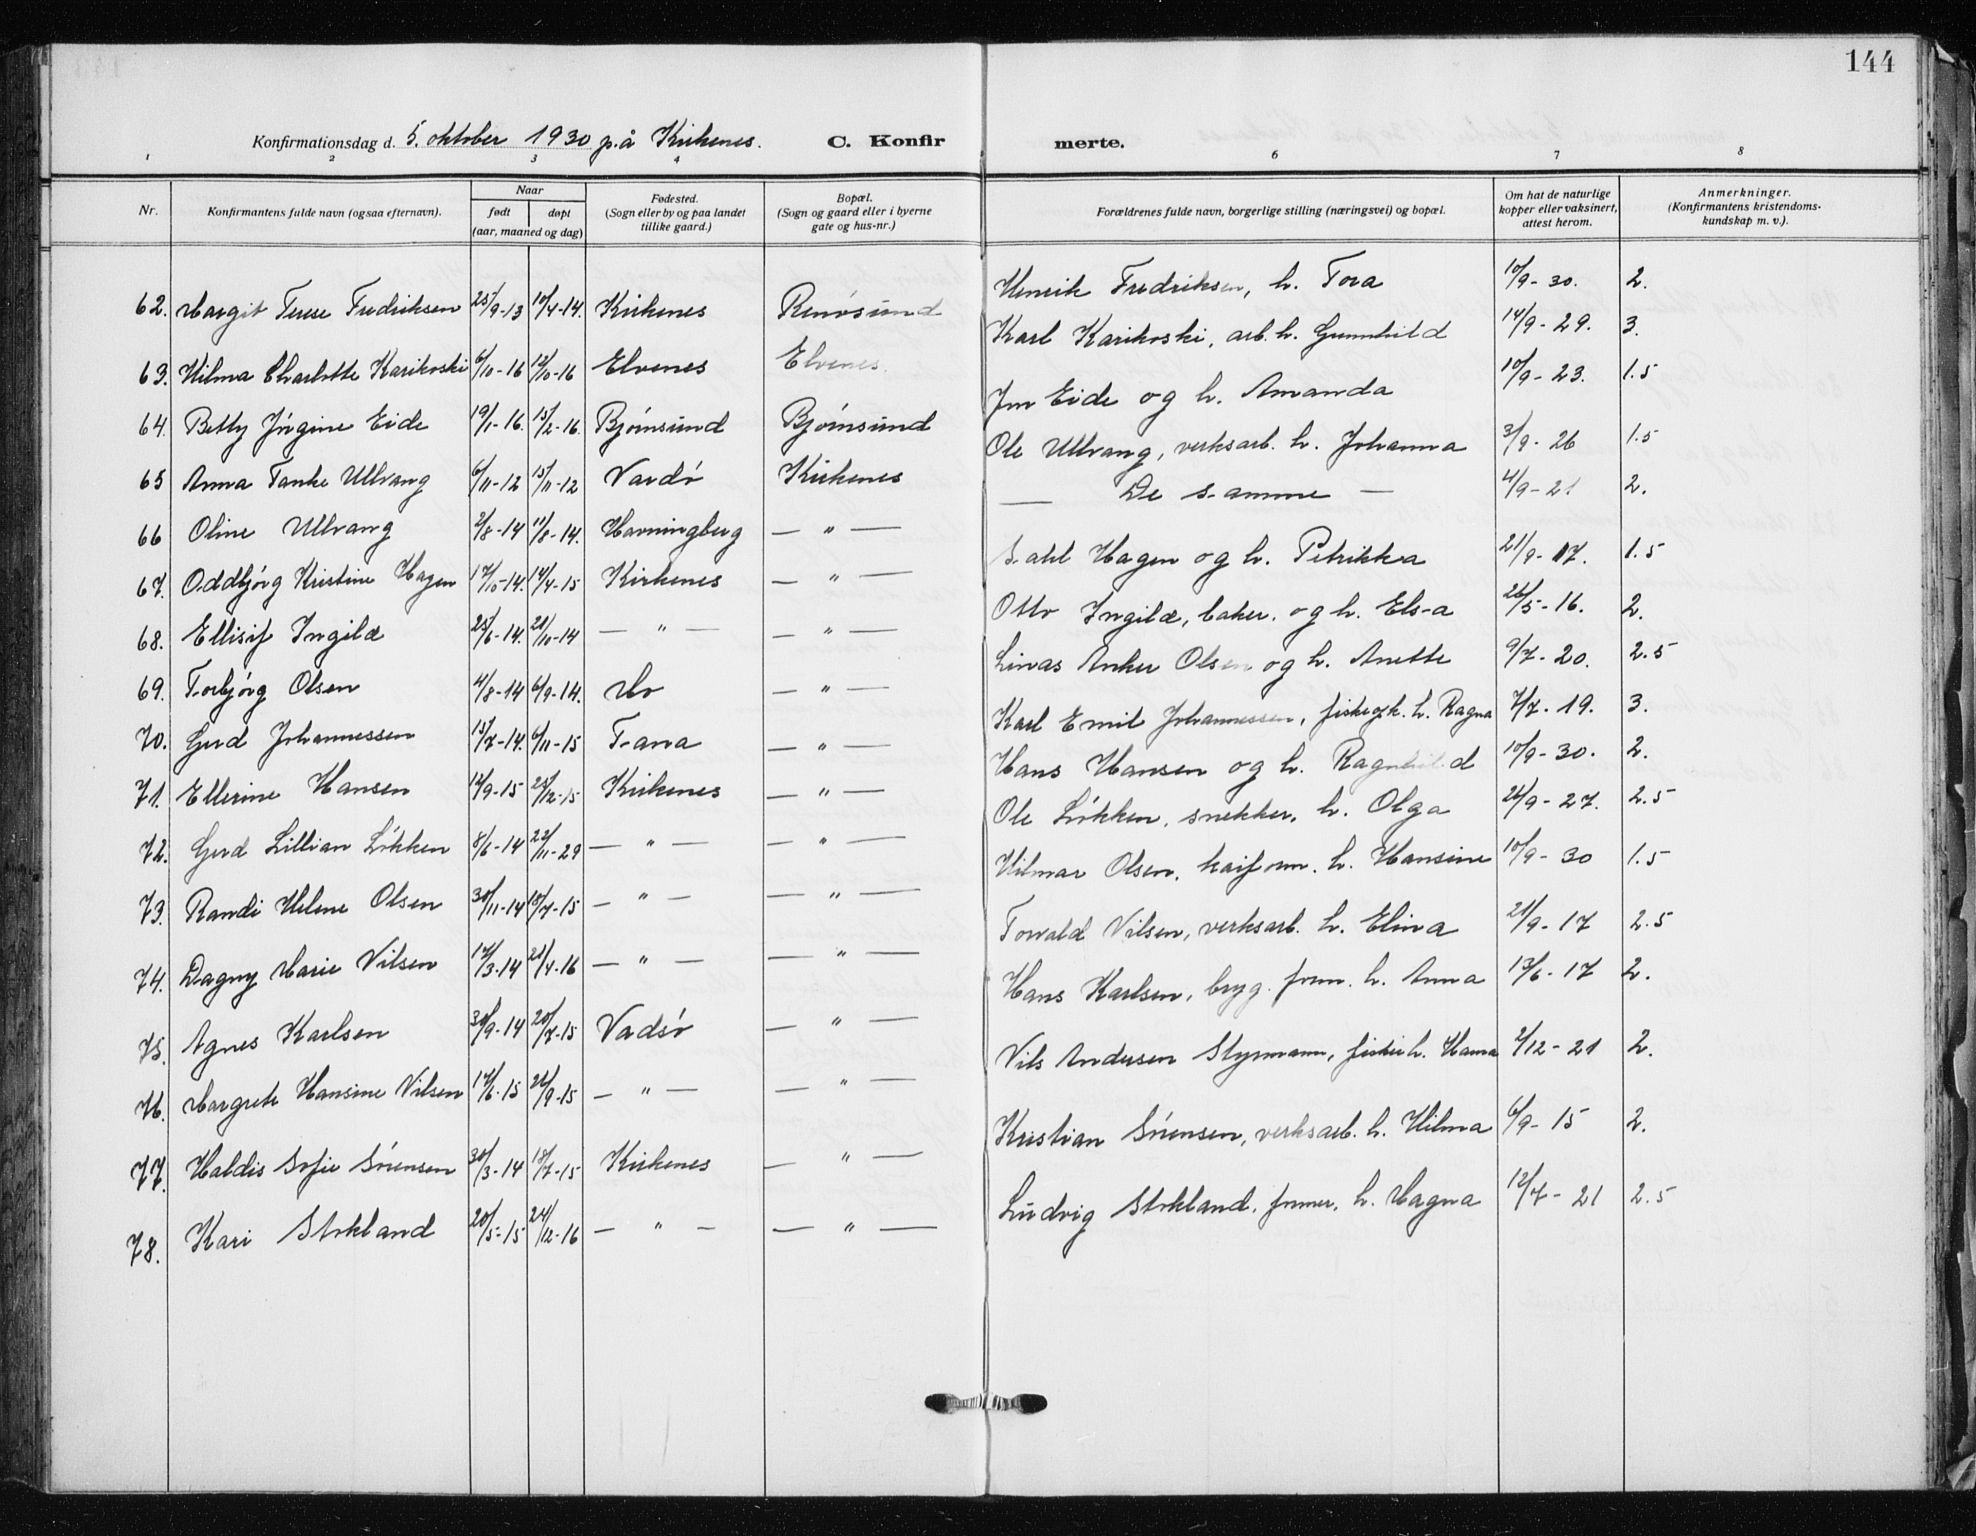 144
Konfirmationsdag d. 5. oktober 1930 på Kirkenes. C. Konfirmerte.
1 2 3 4 6 7 8
Nr. Konfirmantens fulde navn (ogsaa efternavn). Naar født døpt (aar, maaned og dag) Fødested. (Sogn eller by og paa landet tillike gaard.) Bopæl. (Sogn og gaard eller i byerne gate og hus-nr.) Forældrenes fulde navn, borgerlige stilling (næringsvei) og bopæl. Om hat de naturlige kopper eller vaksinert, attest herom. Anmerkninger. (Konfirmantens kristendomskundskap m. v.).
62. Margit Terese Fredriksen 25/9-13 10/4-14. Kirkenes Renøsund Henrik Fredriksen, h. Tora 10/9-30. 2.
63. Hilma Charlotte Karikoski 6/10-16 12/10-16 Elvenes Elvenes. Karl Karikoski, arb. h. Gunnhild 14/9-29. 3.
64. Betty Jörgine Eide 19/1-16. 15/2-16. Björnsund Björnsund Eide og h. Amanda 10/9-23. 1.5
65 Anna Tanke Ullvang 6/11-12 15/11-12 Vardö Kirkenes Ole Ullvang, verksarb. h. Johanna 3/9-26 1.5
66 Oline Ullvang 2/8-14 11/8-14. Havningberg — " — — De samme — 4/9-21 2.
67. Oddbjörg Kristine Hagen 17/10-14. 14/4-15 Kirkenes — " — Hagen og h. Petrikka 21/9-17. 1.5
68. Ellisif Ingilæ 25/6-14. 21/10-14 — " — — " — Otto Ingilæ, baker. og h. Elsa 26/5-16. 2.
69. Torbjörg Olsen 4/8-14 6/9-14. Mo — " — Linas Anker Olsen og h. Anette 9/7-20. 2.5
70. Gerd Johannessen 15/7-14. 6/11-15 Tana — " — Karl Emil Johannessen, h. Ragna 7/7-19. 3.
71. Ellerine Hansen 14/9-15 25/12-15 Kirkenes — " — Hans Hansen og h. Ragnhild 10/9-30. 2.
72. Gerd Lillian Lökken 8/6-14 22/11-29 — " — — " — Ole Lökken, snekker, h. Olga 26/9-27. 2.5
73. Randi Helene Olsen 30/11-14 15/7-15 — " — — " — Hilmar Olsen, h. Hansine 10/9-30 1.5
74. Dagny Marie Nilsen 17/3-14 21/4-16 — " — — " — Torvald Nilsen, verksarb. h. Elina 21/9-17 2.5
75. Agnes Karlsen 30/9-14 20/7-15 Vadsö — " — Hans Karlsen, bryg. form. h. Anna 13/6-17 2.
76. Margrete Hansine Nilsen 17/6-15 26/9-15 — " — — " — Nils Andersen Styrmann, fisker h. Hanna 2/12-21 2.
77. Haldis Sofie Sörensen 30/3-14 18/7-15 Kirkenes — " — Kristian Sörensen, verksarb. h. Hilma 6/9-15 2.
78. Kari Stokland 20/5-15 24/12-16 — " — — " — Ludvig Stokland, former, h. Magna 12/7-21 2.5